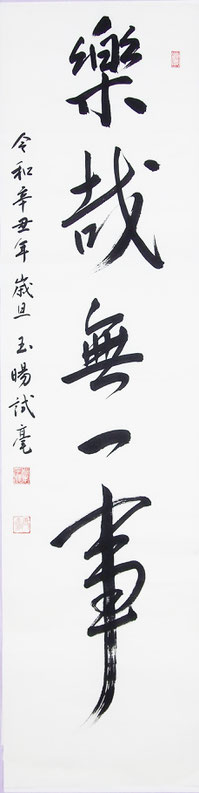 樂哉無一事
令和辛丑年 歳旦 玉暘試毫